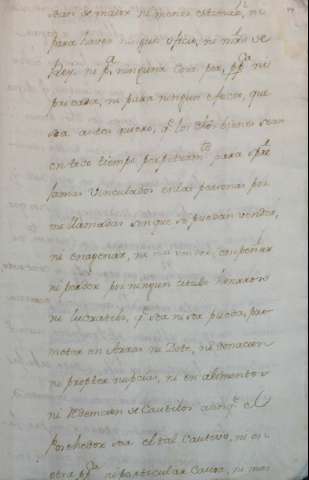 sean de maior ni menor estimaz.ⁿ, ni
para haver ningun oficio, ni mrd de
Rey, ni pᵃ ninguna cosa pia, pᵖᶜᵃ ni
privada, ni para ningun efecto, que
sea antes quiero, q los dhos bienes sean
en todo tiempo perpetuamᵗᵉ para sⁱᵉᵐpre
jamas vinculados en las personas por
mi llamadas sin que se puedan vender,
ni enagenar, ni empeñar
ni perder por ningun titulo honeroso
ni lucrativo, q sea ni se pueda, pro-
meter en Arras ni Dote, ni donacion
ni propter nupcias, ni en alimentos
ni Redempcion de Cautibos aunq.ᵉ el
Posehedor sea el tal Cautivo, ni en
otra pᵖᶜᵃ ni particular Causa, ni mas